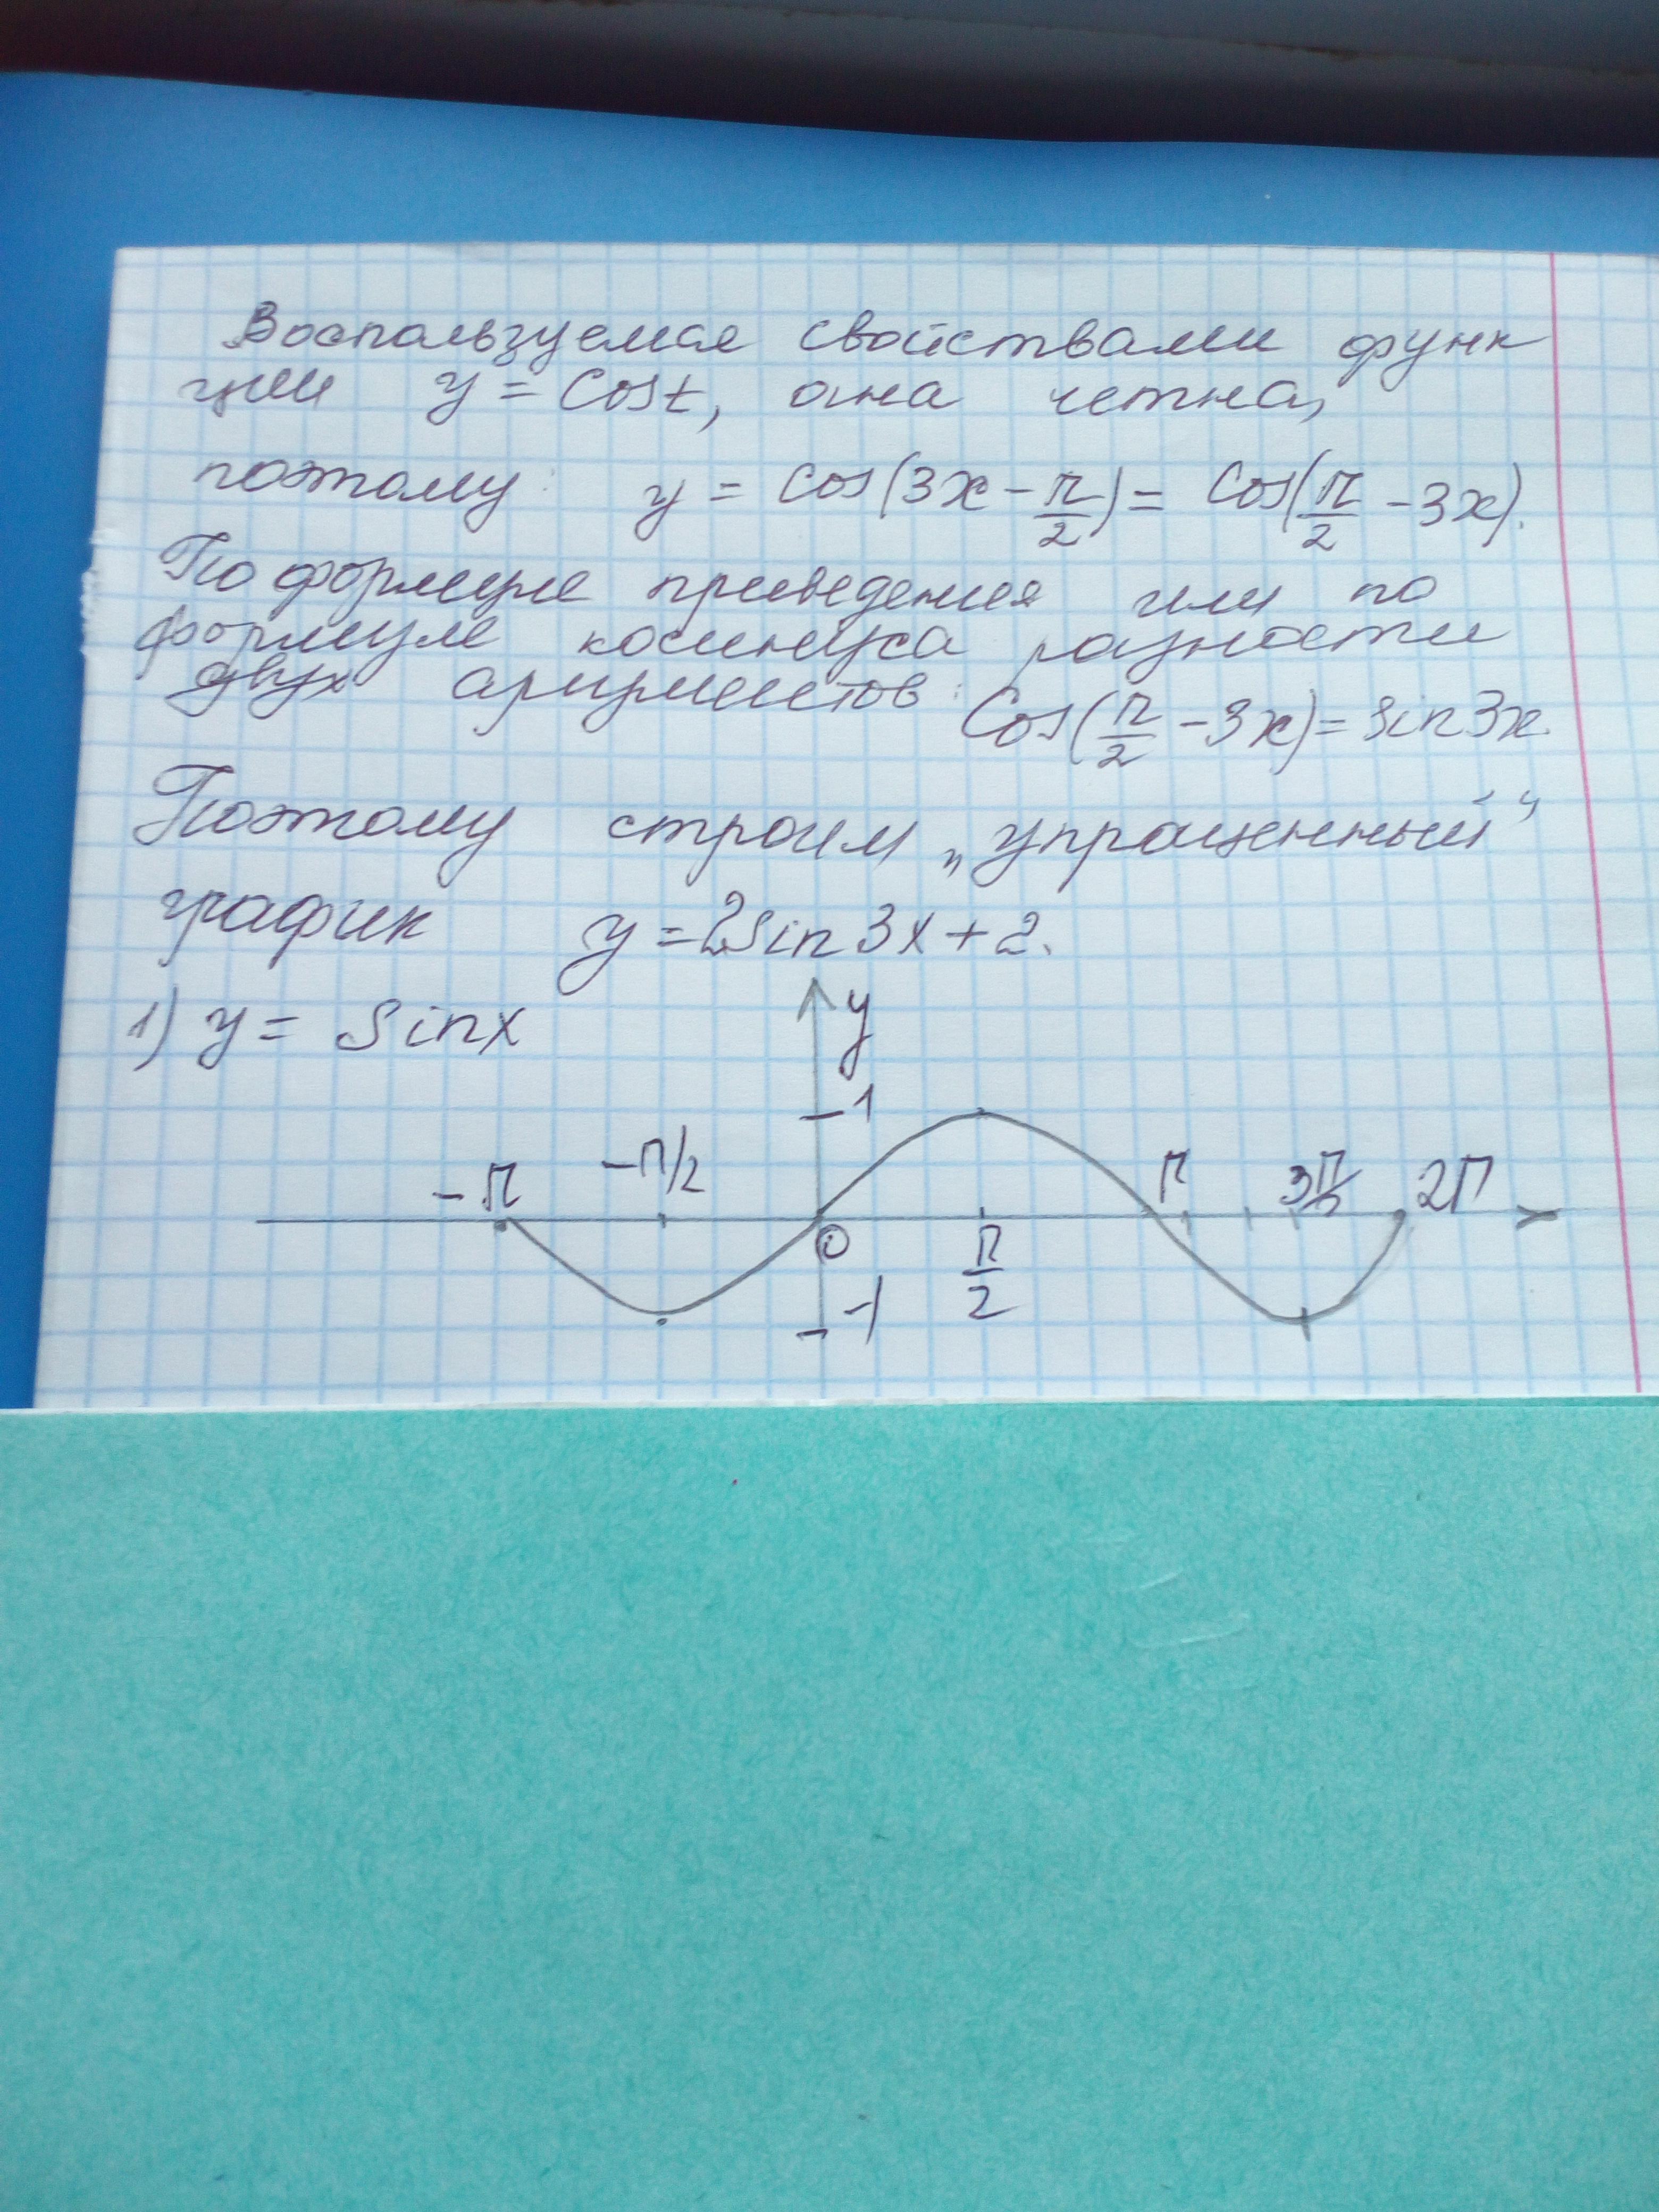 Воспользуемся свойствами функ
ции y = Cost, она четна,
поэтому: y = Cos(3x - π/2) = Cos(π/2 - 3x).
По формуле приведения или по
формуле косинуса разности
двух аргументов: Cos(π/2 - 3x) = Sin3x.
Поэтому строим „упращенный“
график y = 2Sin3x + 2.
1) y = Sinx
y
1
-π -π/2 π 3π/2 2π
0
π/2
-1